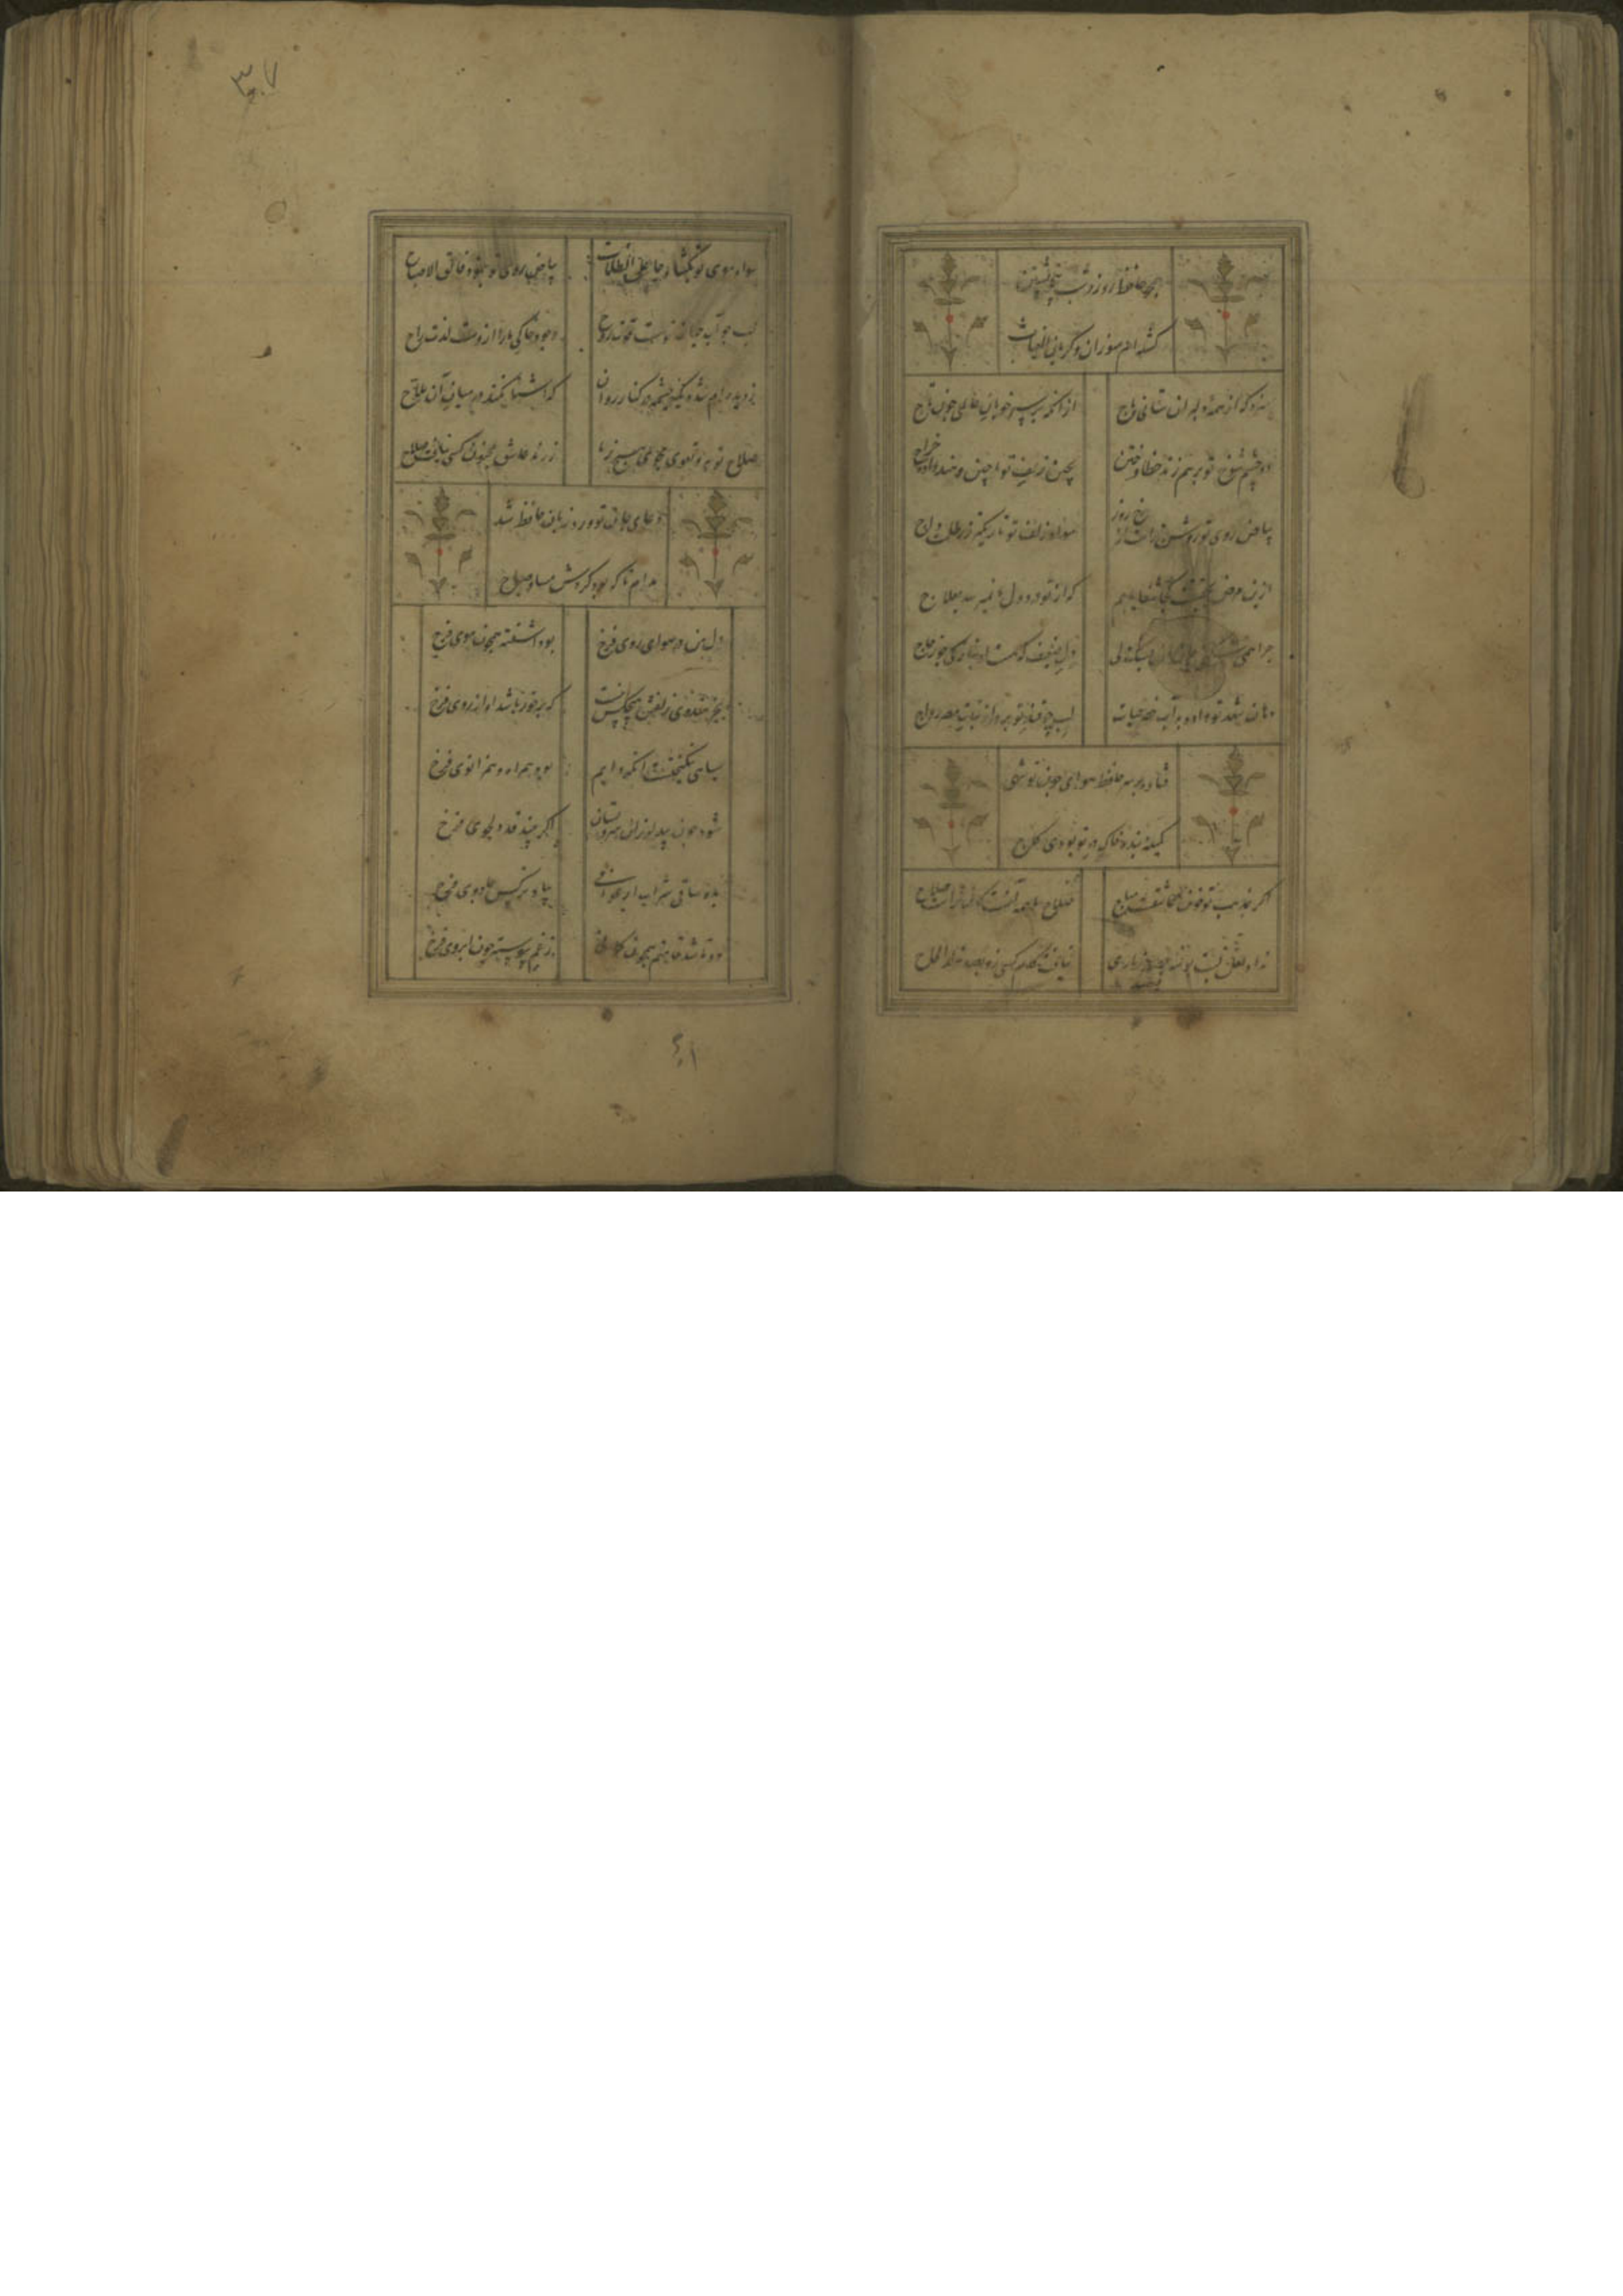 همچو حافظ روز و شب بی خویشتن
گشته ام سوزان و گریان الغیاث
سزد که از همه دلبران ستانی باج
از آنکه بر سر خوبان عالمی چون تاج
دو چشم شوخ تو برهم زند خطا و ختن
بچین زلف تو ماچین و هند داده خراج
بیاض روی تو روشن تر از رخ روز
سواد زلف تو تاریکتر ز ظلمت داج
ازین مرض بحقیقت کجا شفا یابم
که از تو درد دل ما نمیرسد بعلاج
چرا همی شکنی جان من ز سنگ دلی
دل ضعیف که هست او بنازکی چو زجاج
دهان شهد تو داده به آب خضر حیات
لب چو قند تو برد از نبات مصر رواج
فتاده بر سر حافظ هوای چون تو شهی
کمینه بنده خاک در تو بودی کاج
اگر بمذهب تو خون عاشقست مباح
صلاح ما همه آنست کان تراست صلاح
سواد موی تو بگشاد جاعل الظلمات
بیاض روی تو بنمود فالق الاصباح
لب چو آب حیات تو هست قوت روح
وجود خاکی ما را ازوست لذت راح
ز دیده ام شده یک چشمه در کنار روان
که آشنا نکند در میان آن ملاح
صلاح و توبه و تقوی ز ما مجوی هرگز
ز رند عاشق مجنون کسی نیافت صلاح
دعای جان تو ورد زبان حافظ شد
مدام تا که بود گردش مسا و صباح
دل من در هوای روی فرخ
بود آشفته همچون موی فرخ
بجز هندوی زلفش هیچکس نیست
که برخوردار باشد او از روی فرخ
سیاهی نیکبختست آنکه دایم
بود همراه و هم زانوی فرخ
شود چون بید لرزان سرو بستان
اگر بیند قد دلجوی فرخ
بده ساقی شراب ارغوانی
بیاد نرگس جادوی فرخ
دو تا شد قامتم همچون کمانی
ز غم پیوسته چون ابروی فرخ